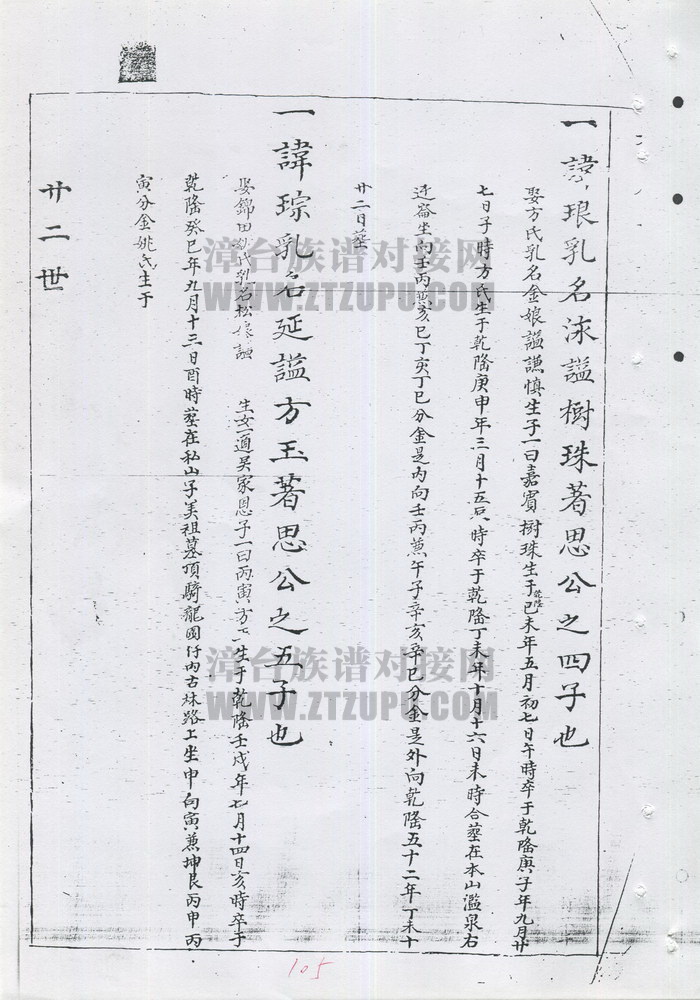 一諱琅乳名泳謚樹珠著思公之四子也
娶方氏乳名金娘謚謙慎生子一曰嘉賓樹珠生于乾隆己未年五月初七日午時卒于乾隆庚子年九月廿
七日子時方氏生于乾隆庚申年三月十五 時卒于乾隆丁未年十月十六日未時合塟在本山濫泉右
邊崙坐向壬丙兼亥巳丁亥丁巳分金是內向壬丙兼午子辛亥辛巳分金是外向乾隆五十二年丁未十
廿二日塟
一諱琮乳名延謚方玉著思公之五子也
娶錦田 氏乳名松娘謚 生女一適吳家恩子一曰丙寅方玉生于乾隆壬戌年七月十四日亥時卒于
乾隆癸巳年九月十三日酉時塟在私山子美祖墓頂騎龍 仔內古林路上坐申向寅兼坤艮丙申丙
寅分金姚氏生于
廿二世
漳台族谱对接网
WWW.ZTZUPU.COM
漳台族谱对接网
WWW.ZTZUPU.COM
105